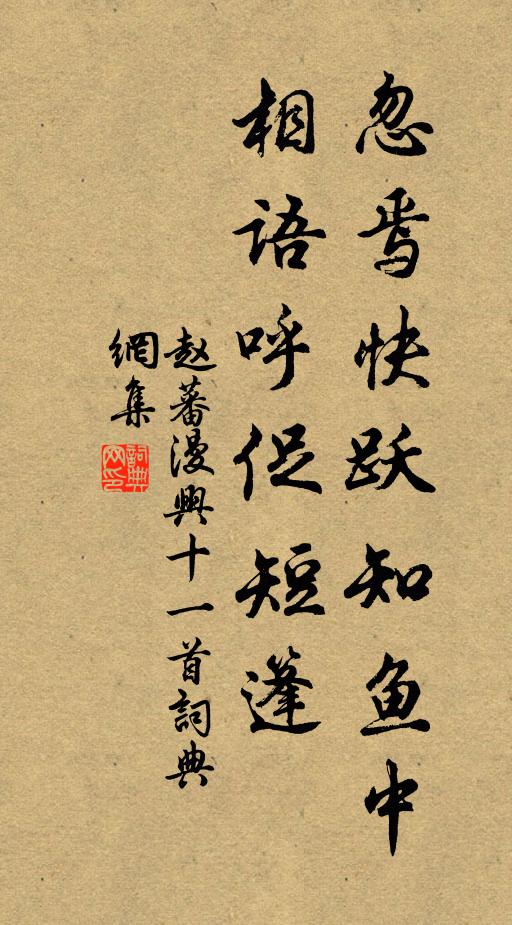 忽焉快跃知鱼中
相语呼促短篷
赵蕃漫兴十一首詞典
網集
詞典
网印